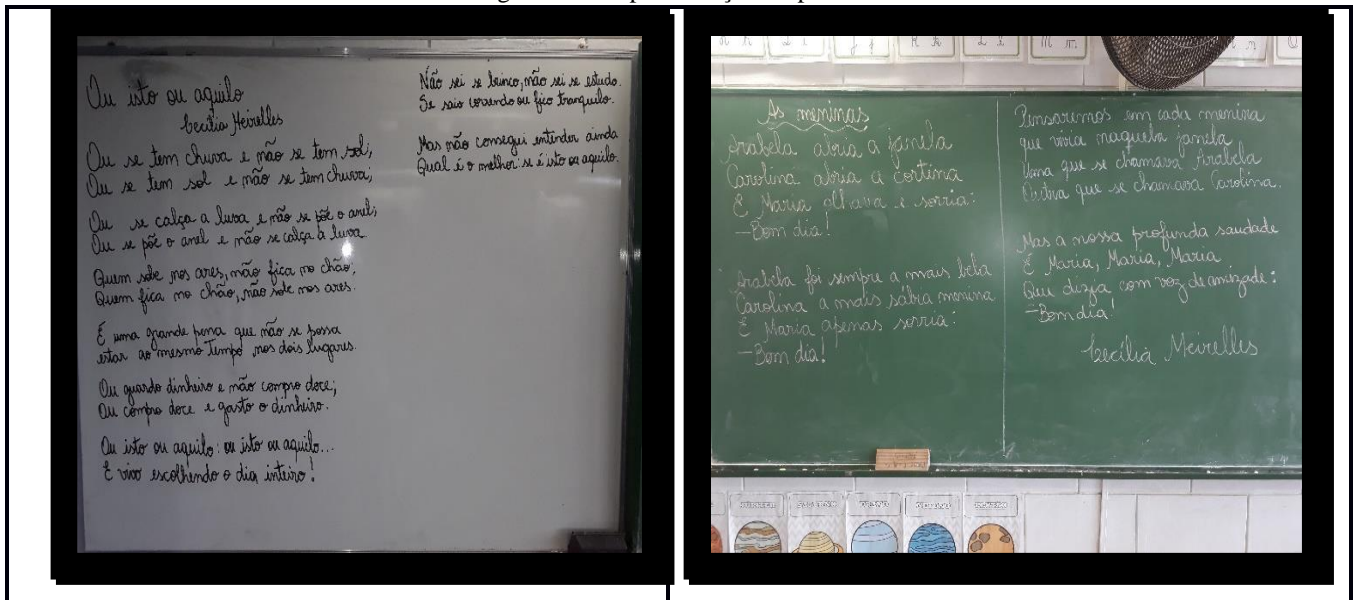 Ou isto ou aquilo
Cecília Meirelles
Ou se tem chuva e não se tem sol;
Ou se tem sol e não se tem chuva;
Ou se calça a luva e não se põe o anel;
Ou se põe o anel e não se calça a luva.
Quem sobe nos ares, não fica no chão;
Quem fica no chão, não sobe nos ares.
É uma grande pena que não se possa
estar ao mesmo tempo nos dois lugares.
Ou guardo dinheiro e não compro doce;
Ou compro doce e gasto o dinheiro.
Ou isto ou aquilo: ou isto ou aquilo...
E vivo escolhendo o dia inteiro!
Não sei se brinco, não sei se estudo.
Se saio correndo ou fico tranquilo.
Mas não consegui entender ainda
Qual é o melhor: se é isto ou aquilo.
As meninas
Arabela abria a janela
Carolina abria a cortina
E Maria olhava e sorria:
—Bom dia!
Arabela foi sempre a mais bela
Carolina a mais sábia menina
E Maria apenas sorria:
—Bom dia!
Pensaremos em cada menina
que vivia naquela janela
Uma que se chamava Arabela
Outra que se chamava Carolina.
Mas a nossa profunda saudade
É Maria, Maria, Maria
Que dizia com voz de amizade:
—Bom dia!
Cecília Meirelles